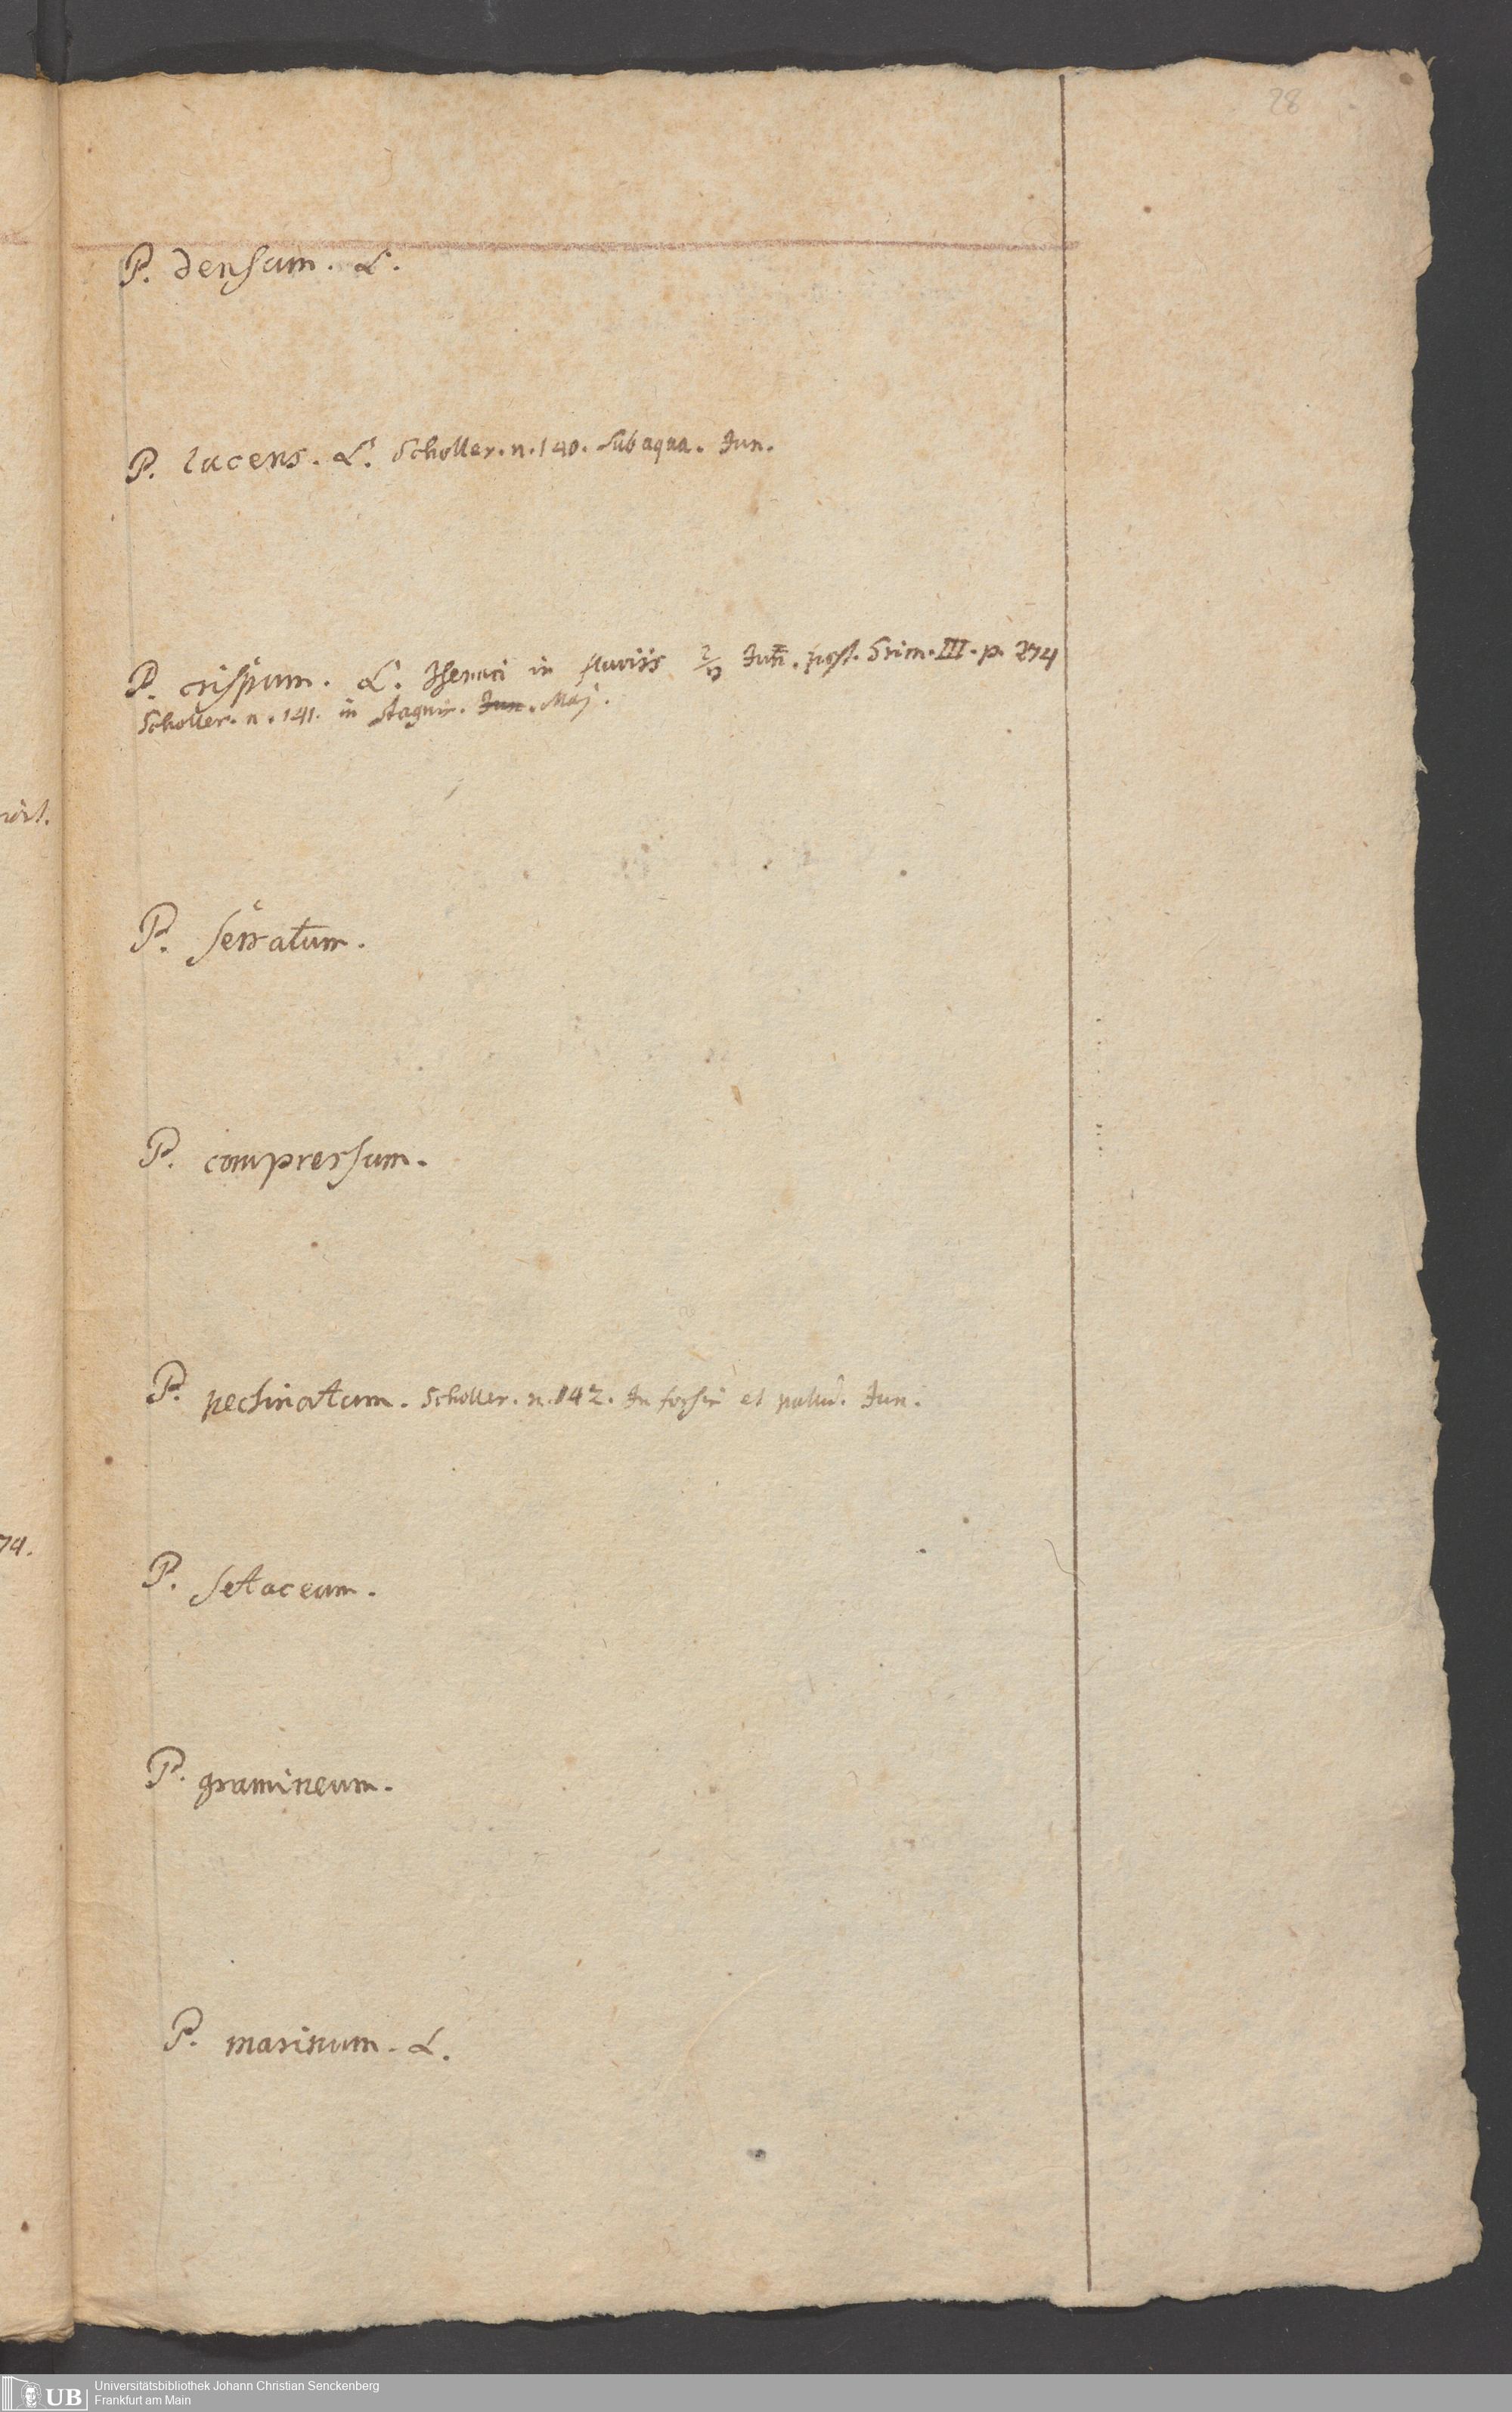 28
P. densum. L.
P. lucens. L. Scholler. n. 140. Sub aqua. Jun.
P. crispum. L. Isenaci in fluviis Jun. post. Grim. III. p. 274
Scholler. n. 141. in stagnis. Jun. Maj.
P. serratum.
P. compressum.
P. pectinatum. Scholler. n. 142. In fossis et palud. Jun.
P. setaceum.
P. gramineum.
P. marinum. L.
74.
UB Universitätsbibliothek Johann Christian Senckenberg
Frankfurt am Main